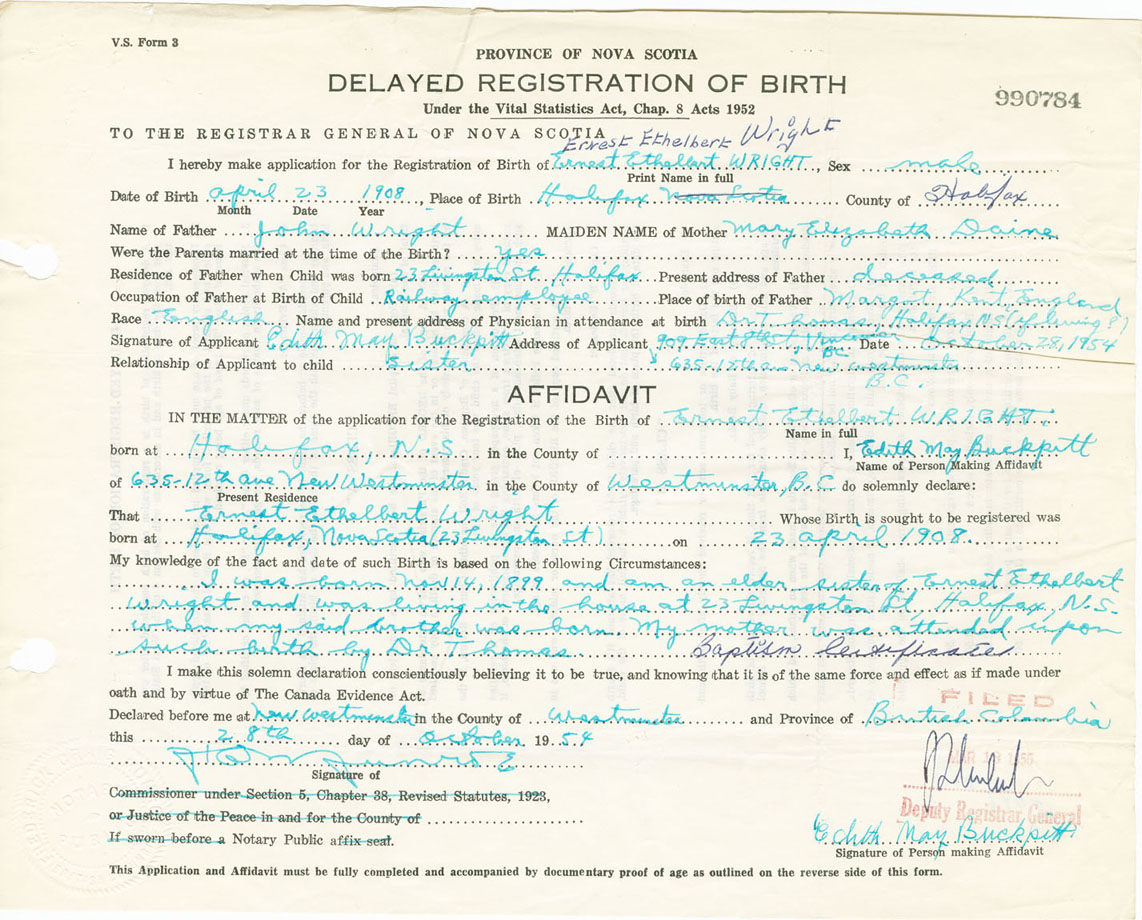 V.S. Form 3
PROVINCE OF NOVA SCOTIA
DELAYED REGISTRATION OF BIRTH
990784
Under the Vital Statistics Act, Chap. 8 Acts 1952
TO THE REGISTRAR GENERAL OF NOVA SCOTIA
Ernest Ethelbert Wright
I hereby make application for the Registration of Birth of Ernest Ethelbert WRIGHT, Sex male
Print Name in full
Date of Birth april 23 1908, Place of Birth Halifax Nova Scotia County of Halifax
Month Date Year
Name of Father John Wright MAIDEN NAME of Mother Mary Elizabeth Daine
Were the Parents married at the time of the Birth? yes
Residence of Father when Child was born 23 Livingston St. Halifax Present address of Father deceased
Occupation of Father at Birth of Child Railway employee Place of birth of Father Margot, Kent, England
Race English Name and present address of Physician in attendance at birth Dr Thomas, Halifax N.S. (if living?)
Signature of Applicant Edith May Buckpitt Address of Applicant 909 East 8th St, BC Date October 28, 1954
Relationship of Applicant to child Sister 635-12th ave New Westminster
B.C.
AFFIDAVIT
IN THE MATTER of the application for the Registration of the Birth of Ernest Ethelbert WRIGHT.
Name in full
born at Halifax, N.S. in the County of I, Edith May Buckpitt
Name of Person Making Affidavit
of 635-12th ave New Westminster in the County of Westminster, B.C. do solemnly declare:
Present Residence
That Ernest Ethelbert Wright Whose Birth is sought to be registered was
born at Halifax, Nova Scotia (23 Livingston St) on 23 april 1908.
My knowledge of the fact and date of such Birth is based on the following Circumstances:
I was born Nov 14, 1899 and am an elder sister of Ernest Ethelbert
Wright and was living in the house at 23 Livingston St, Halifax, N.S.
when my said brother was born. My mother was attended upon
such birth by Dr. Thomas. Baptism Certificate
I make this solemn declaration conscientiously believing it to be true, and knowing that it is of the same force and effect as if made under
oath and by virtue of The Canada Evidence Act.
FILED
Declared before me at New Westminster in the County of Westminster and Province of British Columbia
this 28th day of October 1954
Signature of
Commissioner under Section 5, Chapter 38, Revised Statutes, 1923,
or Justice of the Peace in and for the County of
Deputy Registrar General
If sworn before a Notary Public affix seal.
Edith May Buckpitt
Signature of Person making Affidavit
This Application and Affidavit must be fully completed and accompanied by documentary proof of age as outlined on the reverse side of this form.